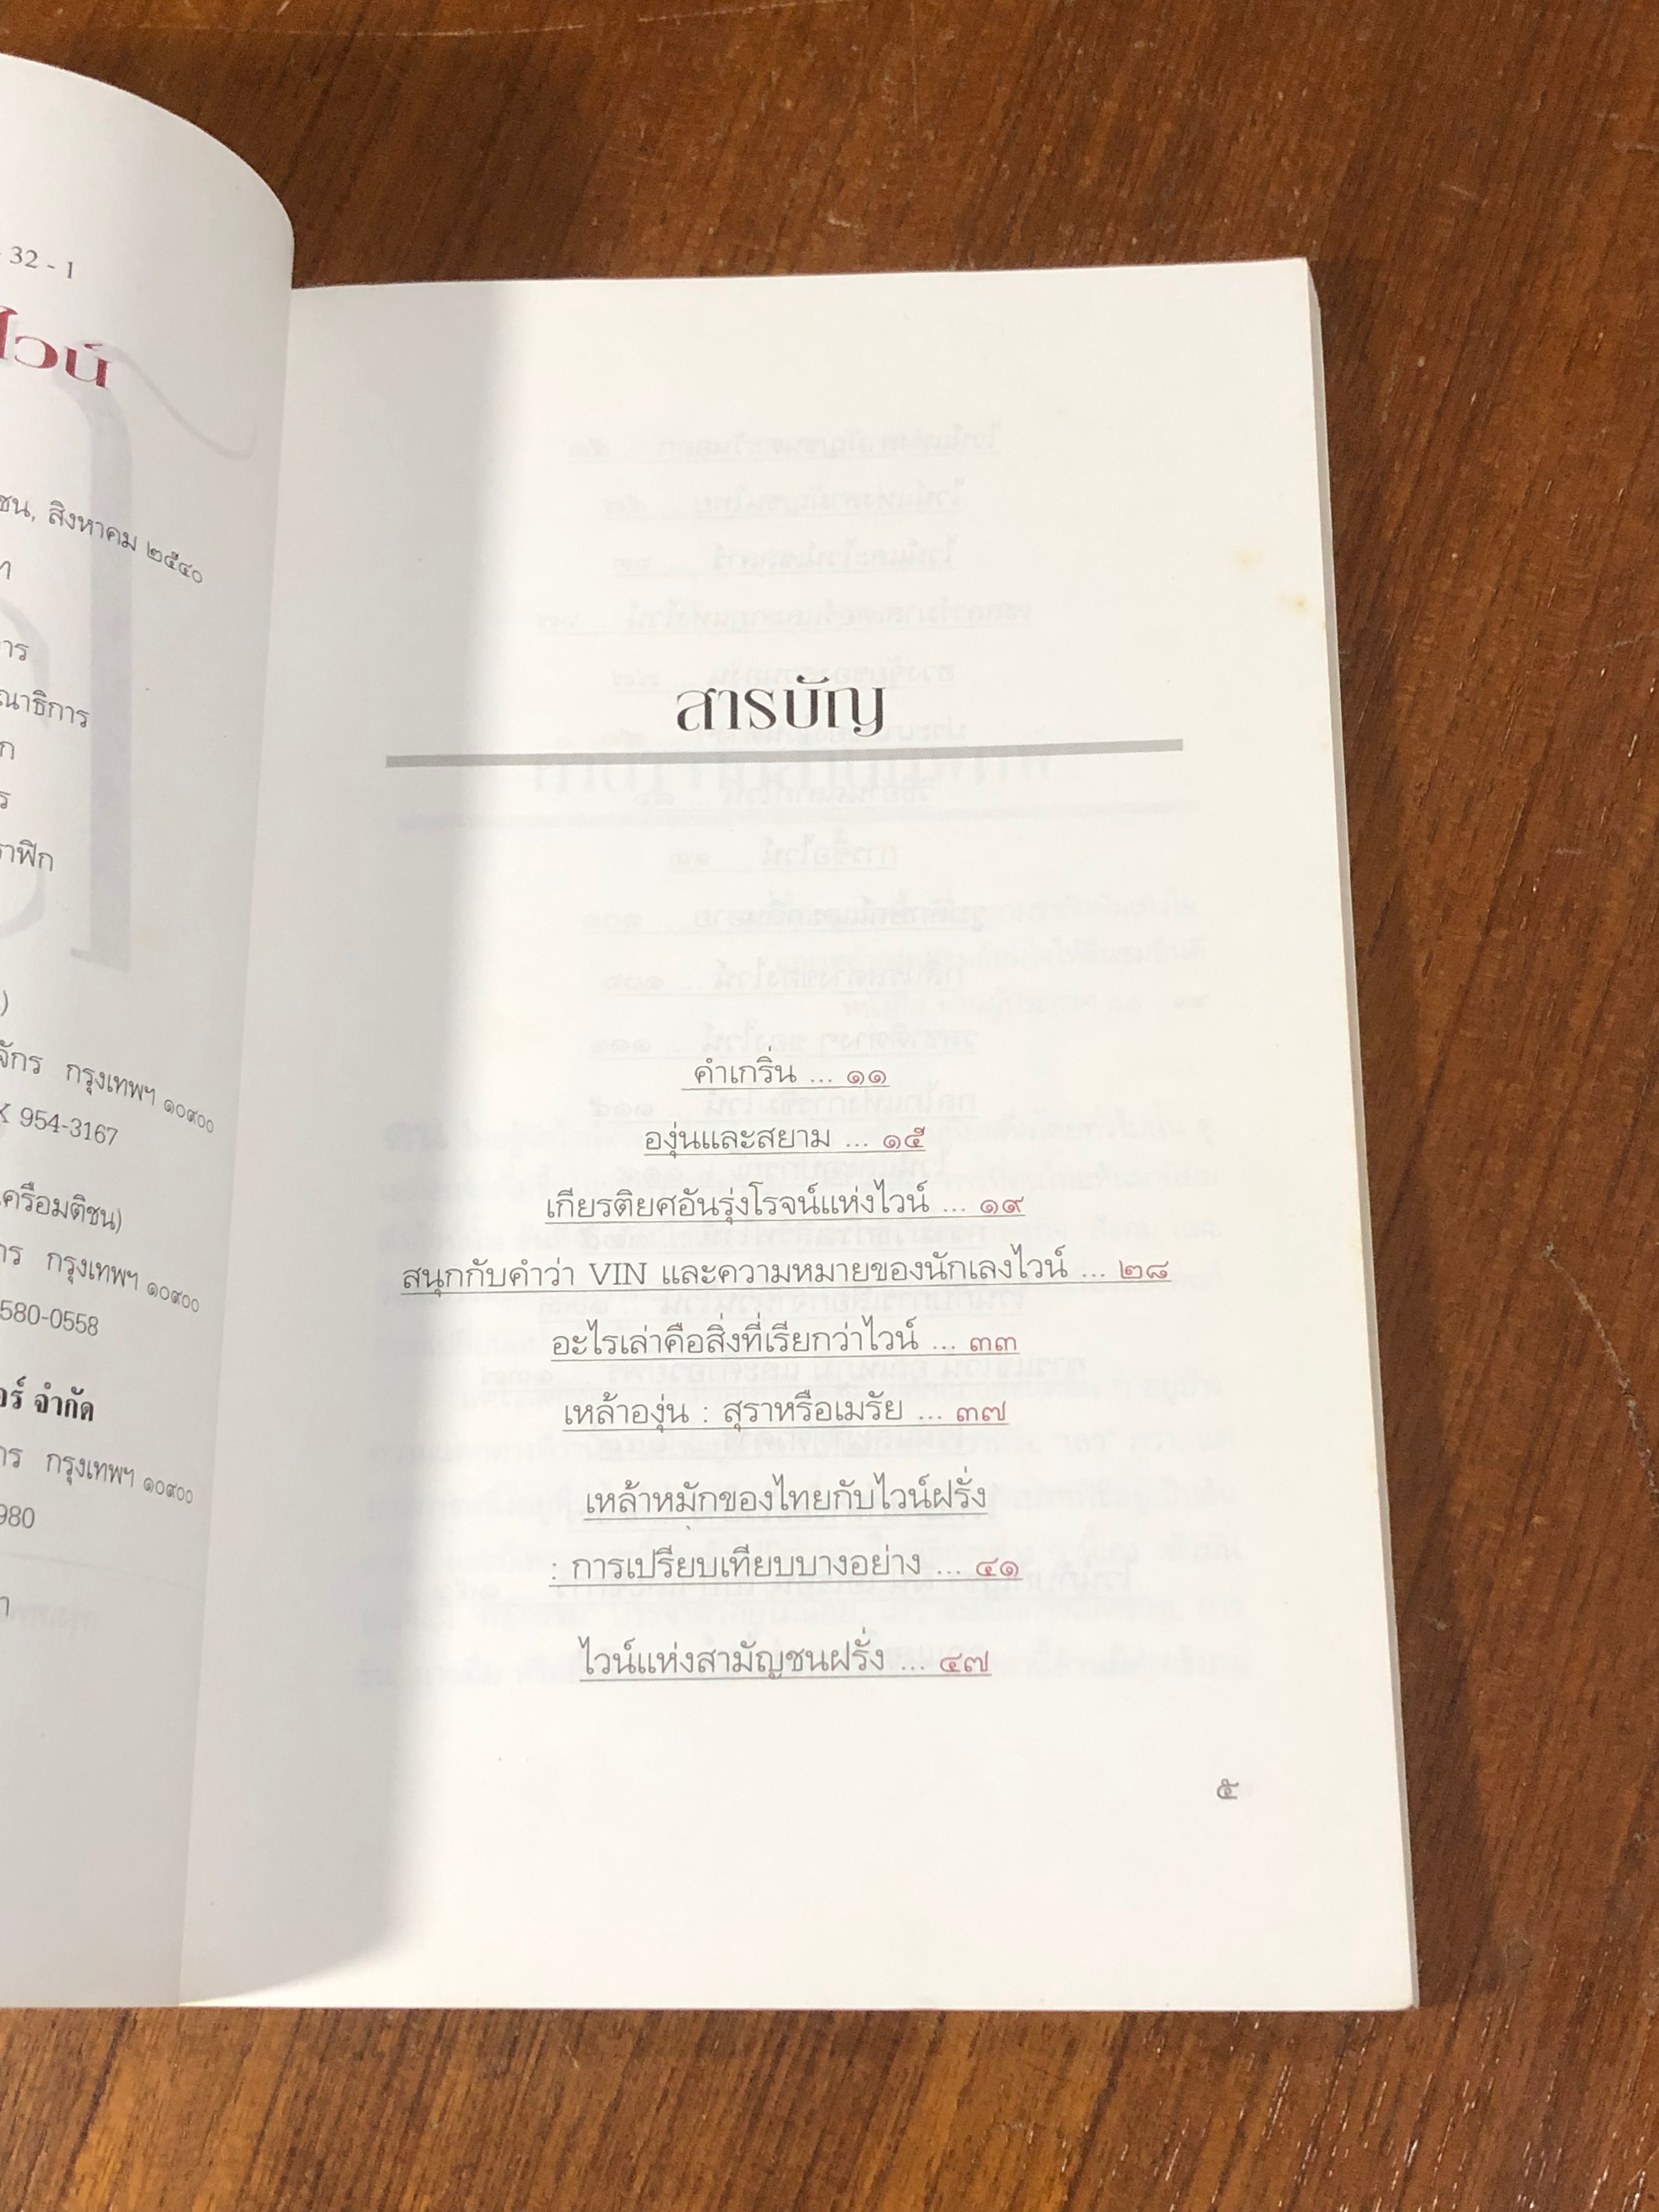 32 - 1
ไวน์
ชน, สิงหาคม ๒๕๔๐
การ
ณาธิการ
ราฟิก
จักร กรุงเทพฯ ๑๐๙๐๐
954-3167
ครือมติชน)
กร กรุงเทพฯ ๑๐๙๐๐
580-0558
อร์ จำกัด
กร กรุงเทพฯ ๑๐๙๐๐
980
สารบัญ
คำเกริ่น ... ๑๑
องุ่นและสยาม ... ๑๕
เกียรติยศอันรุ่งโรจน์แห่งไวน์ ... ๑๙
สนุกกับคำว่า VIN และความหมายของนักเลงไวน์ ... ๒๘
อะไรเล่าคือสิ่งที่เรียกว่าไวน์ ... ๓๓
เหล้าองุ่น : สุราหรือเมรัย ... ๓๗
เหล้าหมักของไทยกับไวน์ฝรั่ง
: การเปรียบเทียบบางอย่าง ... ๔๑
ไวน์แห่งสามัญชนฝรั่ง ... ๔๗
๕